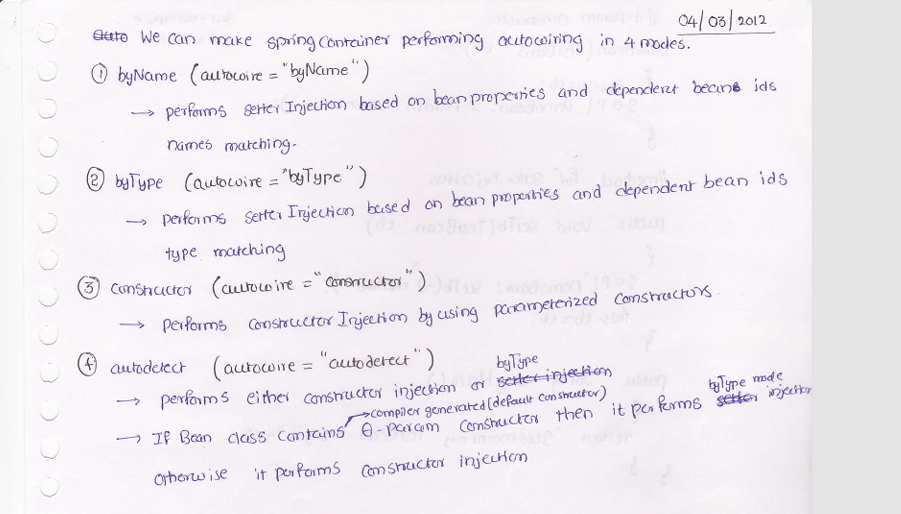 04/03/2012
We can make spring container performing autowiring in 4 modes.
① byName (autowire = "byName")
→ performs setter Injection based on bean properties and dependent beans ids
names matching.
② byType (autowire = "byType")
→ performs setter Injection based on bean properties and dependent bean ids
type matching
③ constructor (autowire = "constructor")
→ performs constructor Injection by using parameterized constructors.
④ autodetect (autowire = "autodetect")
byType
→ performs either constructor injection or setter injection
→ compiler generated (default constructor)
byType mode
→ If Bean class contains 0-param constructor then it performs setter injection
otherwise it performs constructor injection